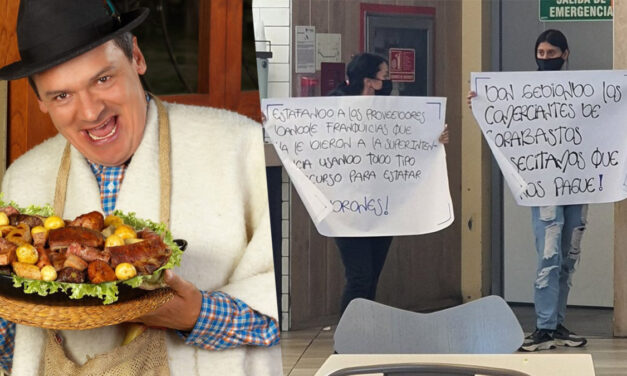 EMERGENCIA
ESTAFANDO A LOS PROVEEDORES
DANDOLE FRANQUICIAS QUE
YA LE DIERON A LA SUPERINTEN
CIA USANDO TODO TIPO
CURSO PARA ESTAFAR
DRONES!
DON GEDIONDO LOS
COMERCIANTES DE
CORABASTOS
ECECITAMOS QUE
NOS PAGUE!